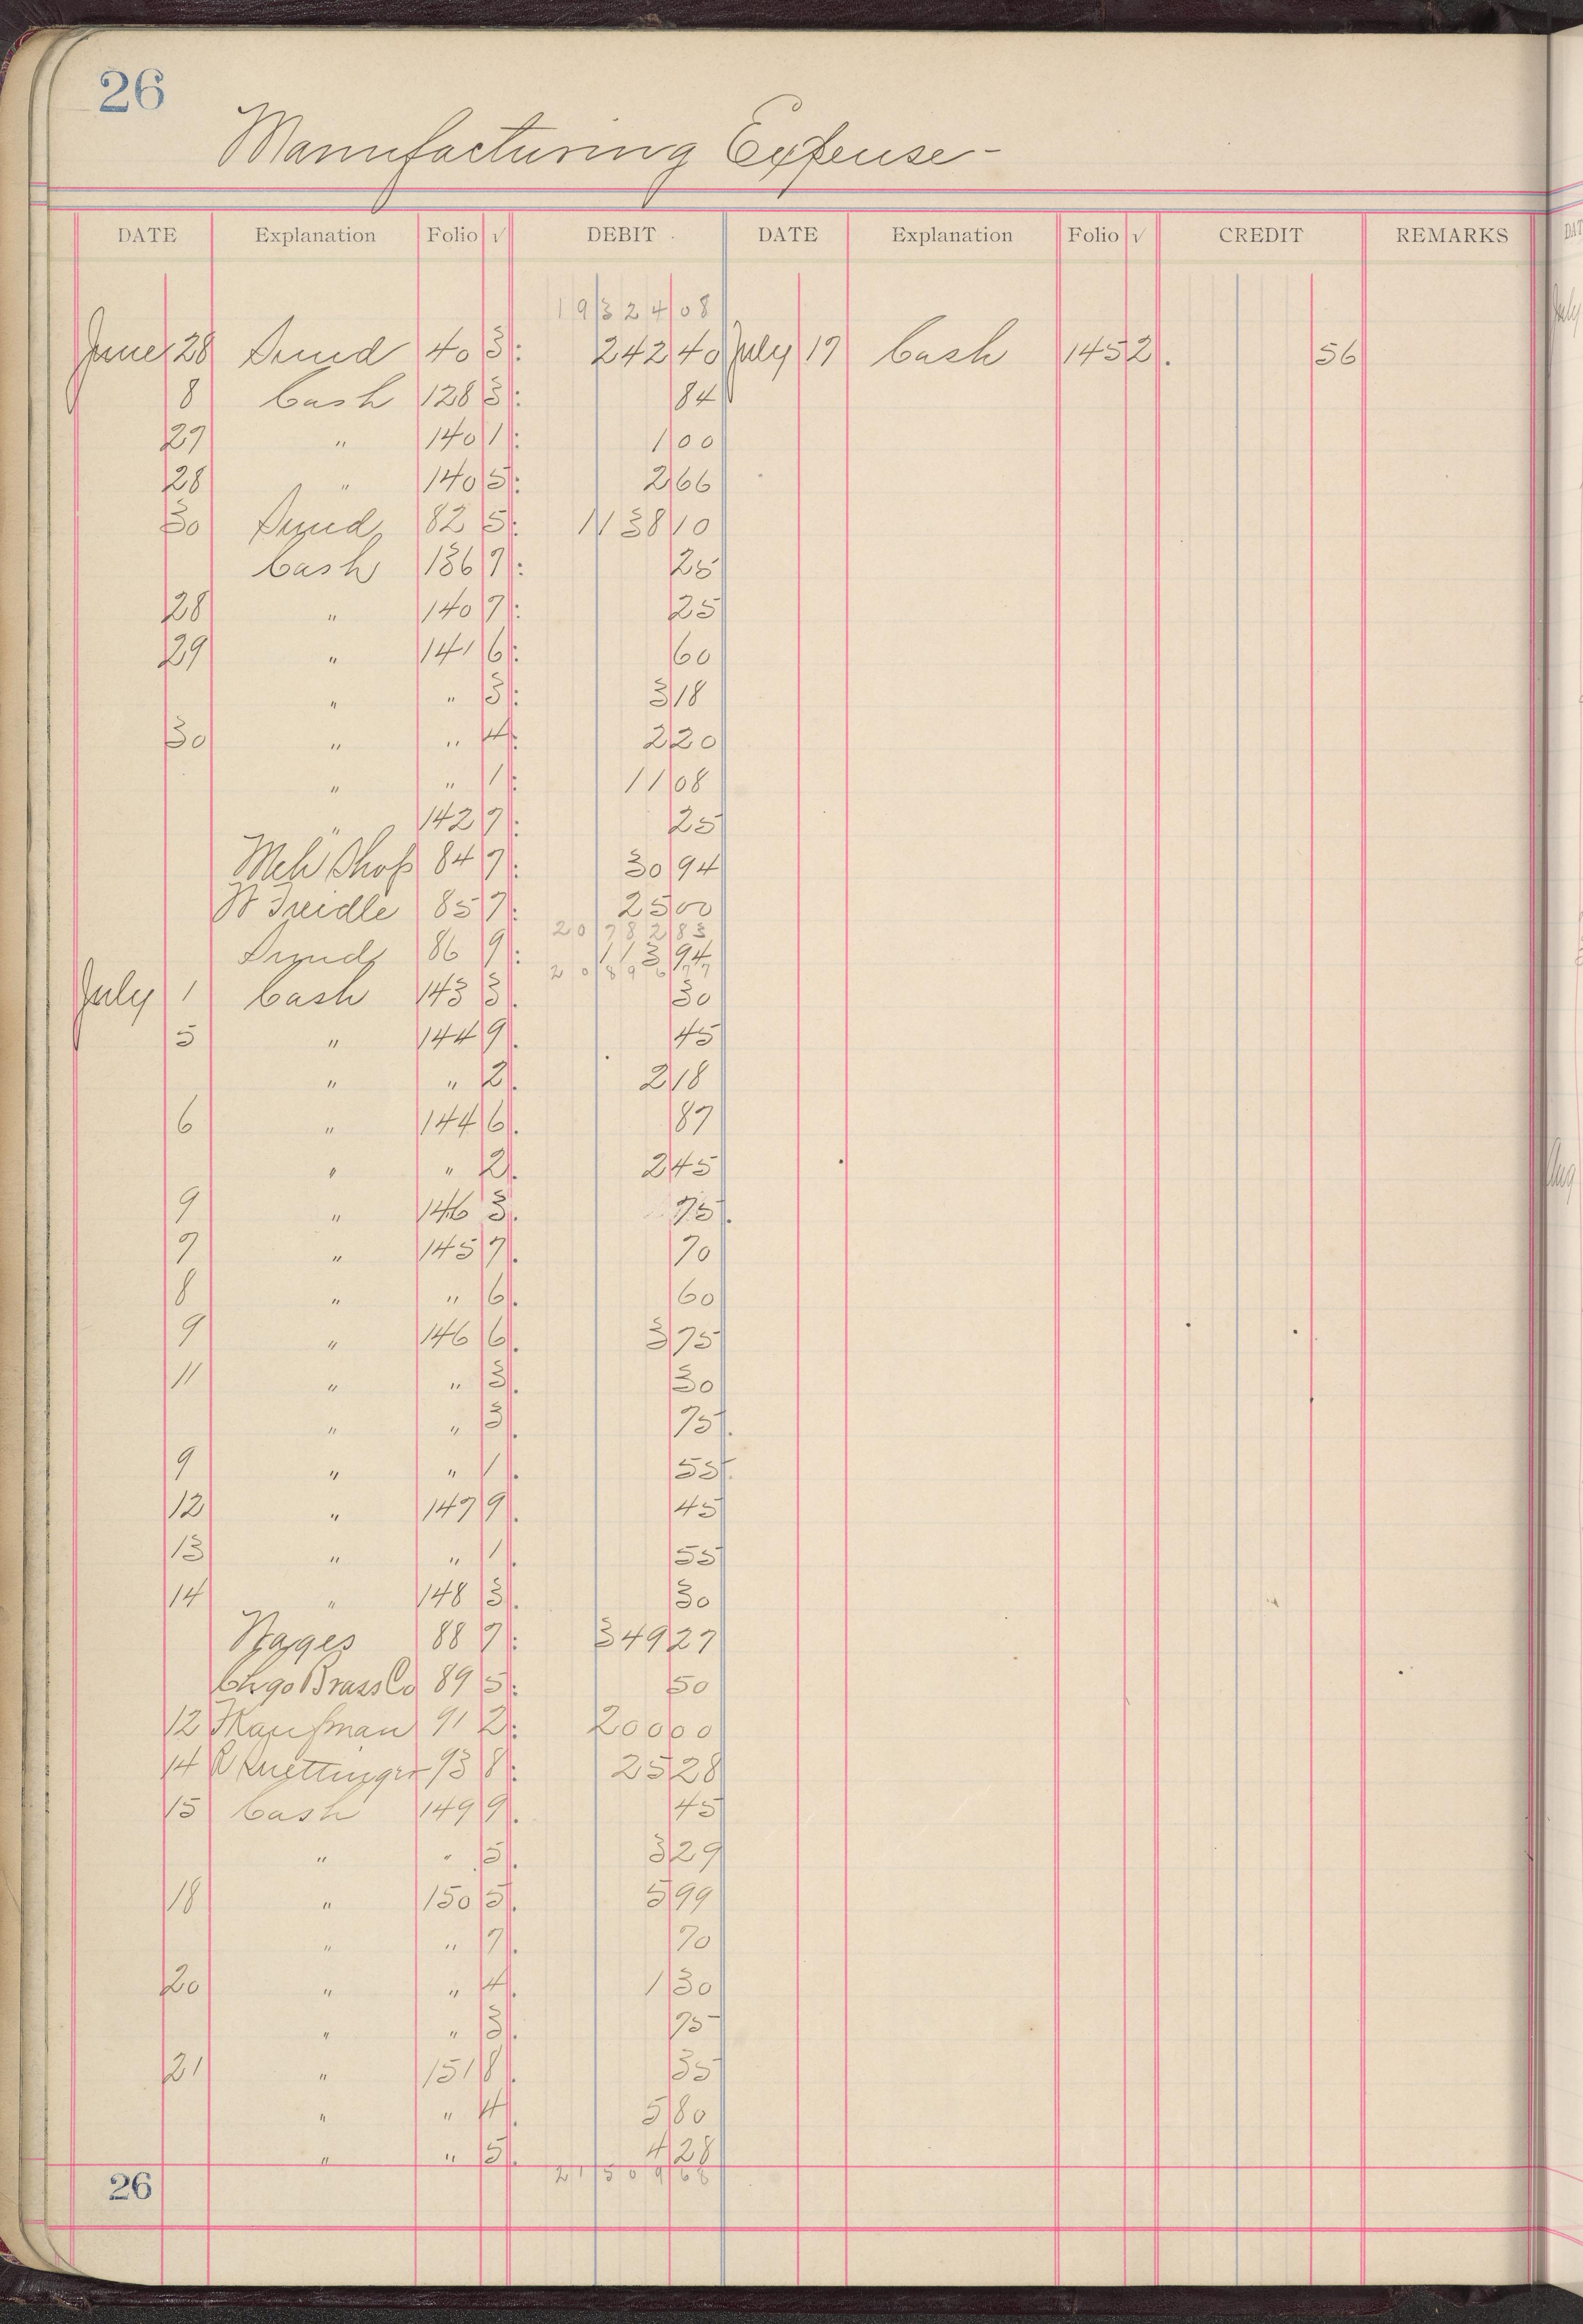 26
Manufacturing Expense -
DATE Explanation Folio √ DEBIT DATE Explanation Folio √ CREDIT REMARKS
19324 08
June 28 Sund 40 3: 242 40 July 17 Cash 145 2. 56
8 Cash 128 3: 84
27 " 140 1: 1 00
28 " 140 5: 2 66
30 Sund 82 5: 1138 10
Cash 136 7: 25
28 " 140 7: 25
29 " 141 6: 60
" " 3: 3 18
30 " " 4: 2 20
" " 1: 11 08
" 142 7: 25
Mch Shop 84 7: 30 94
85 7: 25 00
20782 83
Sund 86 9: 113 94
20896 77
July 1 Cash 143 3. 30
5 " 144 9. 45
" " 2. 2 18
6 " 144 6. 87
" " 2. 2 45
9 " 146 3. 75.
7 " 145 7. 70
8 " " 6. 60
9 " 146 6. 3 75
11 " " 3. 30
" " 3. 75.
9 " " 1. 55.
12 " 147 9. 45
13 " " 1. 55
14 " 148 3. 30
Wages 88 7: 349 27
Chgo Brass Co 89 5: 50
12 Kaufman 91 2: 200 00
14 93 8: 25 28
15 Cash 149 9. 45
" " 5. 3 29
18 " 150 5. 5 99
" " 7. 70
20 " " 4. 1 30
" " 3. 75
21 " 151 8. 35
" " 4. 5 80
" " 5. 4 28
21509 68
26